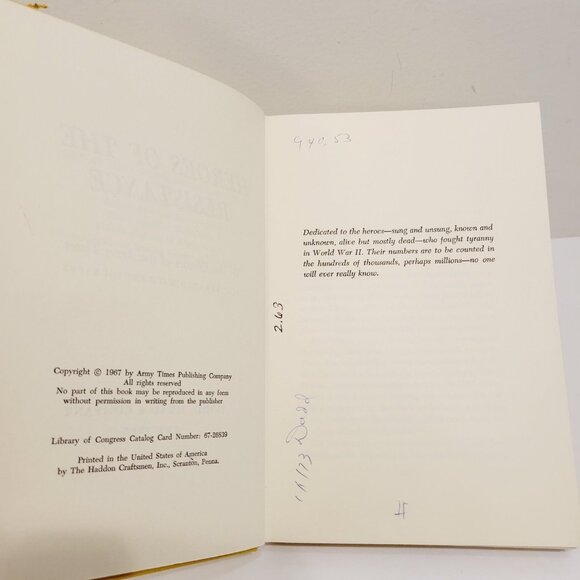 HEROES OF THE
RESISTANCE
Copyright © 1967 by Army Times Publishing Company
All rights reserved
No part of this book may be reproduced in any form
without permission in writing from the publisher
Library of Congress Catalog Card Number: 67-26839
Printed in the United States of America
by The Haddon Craftsmen, Inc., Scranton, Penna.
940.53
Dedicated to the heroes—sung and unsung, known and
unknown, alive but mostly dead—who fought tyranny
in World War II. Their numbers are to be counted in
the hundreds of thousands, perhaps millions—no one
will ever really know.
2.63
Dodd